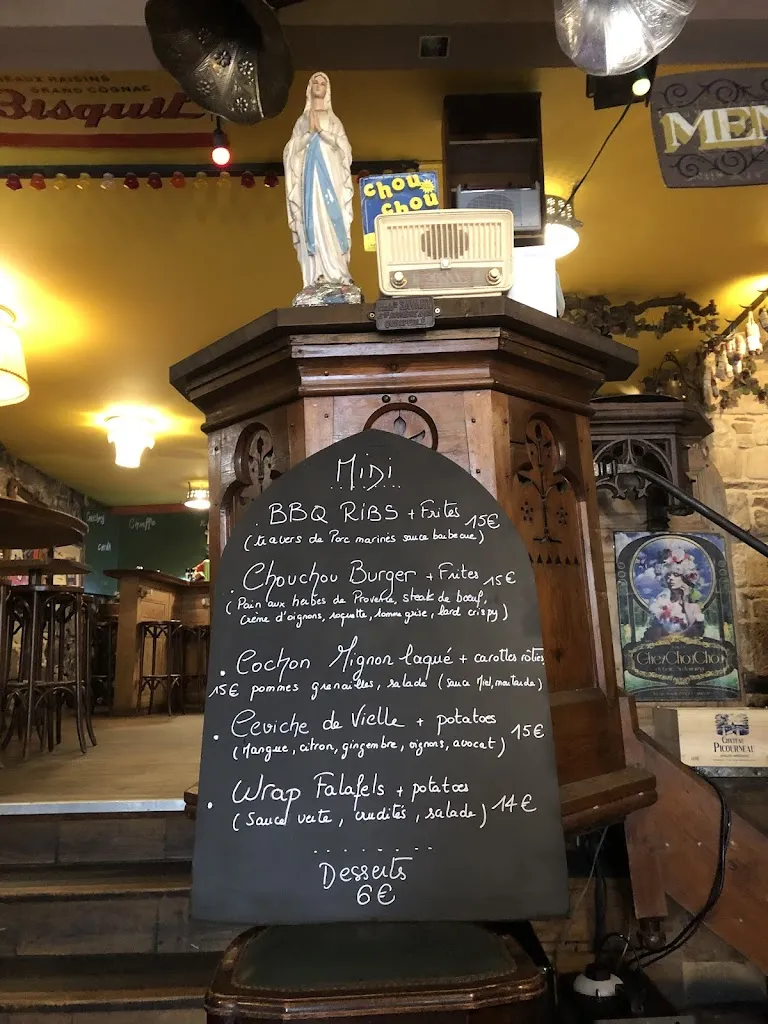 BEAUX RAISINS
GRAND COGNAC
Bisquit
MEN
chou
chou
MIDI
BBQ RIBS + Frites 15€
(travers de Porc marinés sauce barbecue)
Chouchou Burger + Frites 15€
(Pain aux herbes de Provence, steak de bœuf,
Crème d'oignons, roquette, tomme grise, lard crispy)
. Cochon Mignon laqué + carottes rôties
15€ pommes grenailles, salade (sauce Miel, moutarde)
. Ceviche de Vielle + potatoes 15€
(Mangue, citron, gingembre, oignons, avocat)
. Wrap Falafels + potatoes
(Sauce verte, crudités, salade) 14€
Desserts
6€
Chez ChouChou
CHATEAU
PICOURNEAU